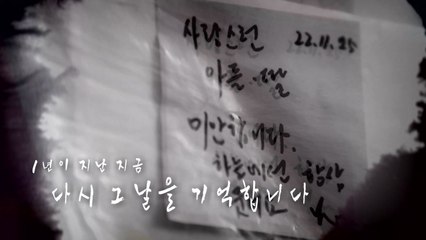 사랑스런 22.11.25
아들·딸
미안합니다.
하늘에선 항상
1년이 지난 지금
다시 그날을 기억합니다